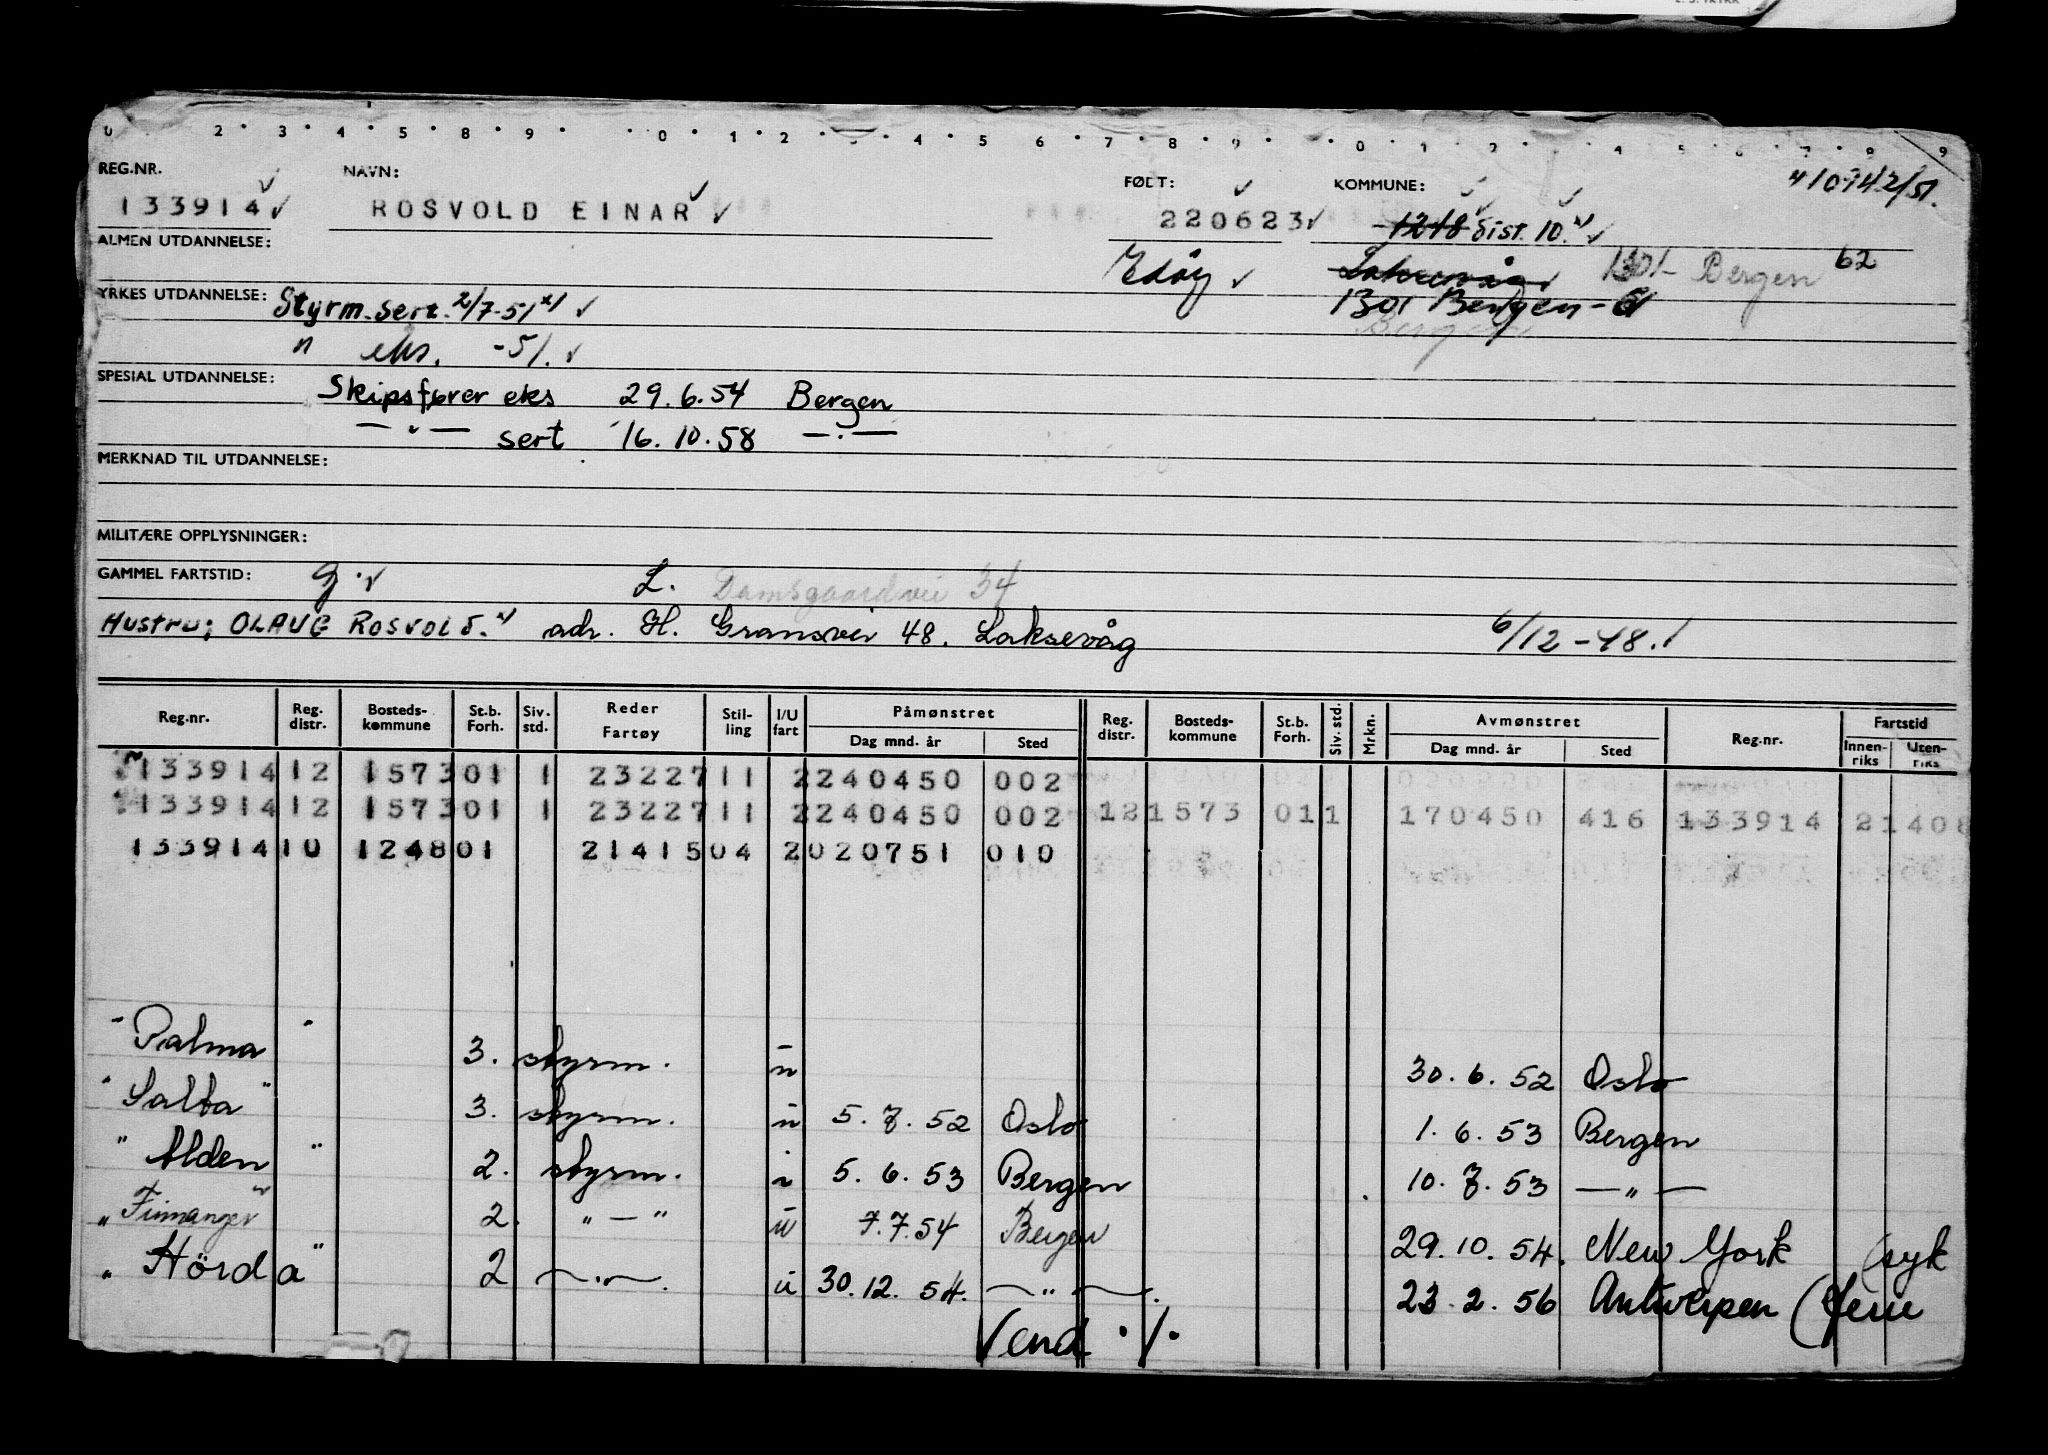 0 2 3 4 5 8 9 0 1 2 4 5 6 7 8 9 0 1 2 4 5 6 7 8 9
REG.NR. NAVN: FØDT: KOMMUNE: 410942/51.
133914 ROSVOLD EINAR 220623 1248 dist. 10. x)
ALMEN UTDANNELSE: Edöy Laksevåg 1301 Bergen 62
YRKES UTDANNELSE: Styrm.sert. 2/7-51 x) 1301 Bergen - 61
" eks. -51. Bergen
SPESIAL UTDANNELSE: Skipsfører eks 29.6.54 Bergen
— " — sert 16.10.58 — " —
MERKNAD TIL UTDANNELSE:
MILITÆRE OPPLYSNINGER:
GAMMEL FARTSTID: G. L. Damsgaardvei 34
Hustru; OLAUG ROSVOLD. x) adr. H. Gransvei 48. Laksevåg 6/12-48.
Reg.nr. Reg. distr. Bosteds-kommune St.b. Forh. Siv. std. Reder Fartøy Stil-ling I/U fart Påmønstret Dag mnd. år Sted Reg. distr. Bosteds-kommune St.b. Forh. Siv. std. Mrkn. Avmønstret Dag mnd. år Sted Reg.nr. Fartstid Innen-riks Uten-riks
133914 12 1573 01 1 23227 11 2 240450 002
133914 12 1573 01 1 23227 11 2 240450 002 12 1573 01 1 170450 416 133914 21408
133914 10 1248 01 21415 04 2 020751 010
"Palma" 3. styrm. u 30.6.52 Oslo
"Salta" 3. styrm. u 5.7.52 Oslo 1.6.53 Bergen
"Alden" 2. styrm. i 5.6.53 Bergen 10.7.53 — " —
"Finnanger" 2. " — " u 7.7.54 Bergen 29.10.54. New York (syk
"Hörda" 2 — " —. u 30.12.54. — " —. 23.2.56 Antwerpen (ferie
Vend ./.